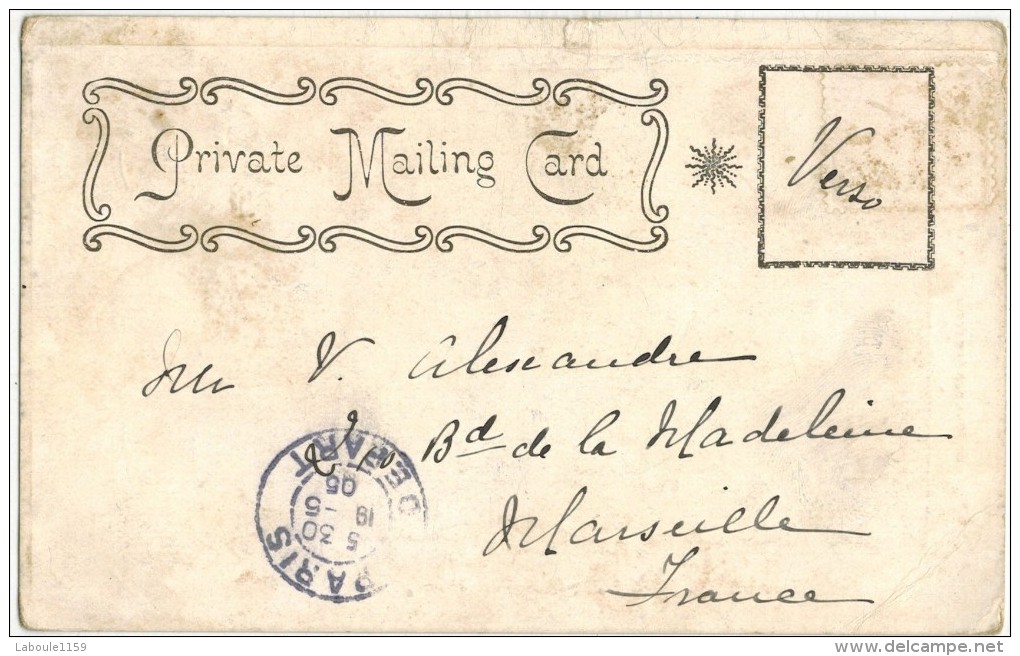 Private Mailing Card
Verso
V. Alexandre
Bd de la Madeleine
Marseille
France
PARIS DEPART
5 30
19 - 5
05
Laboule1159
www.delcampe.net